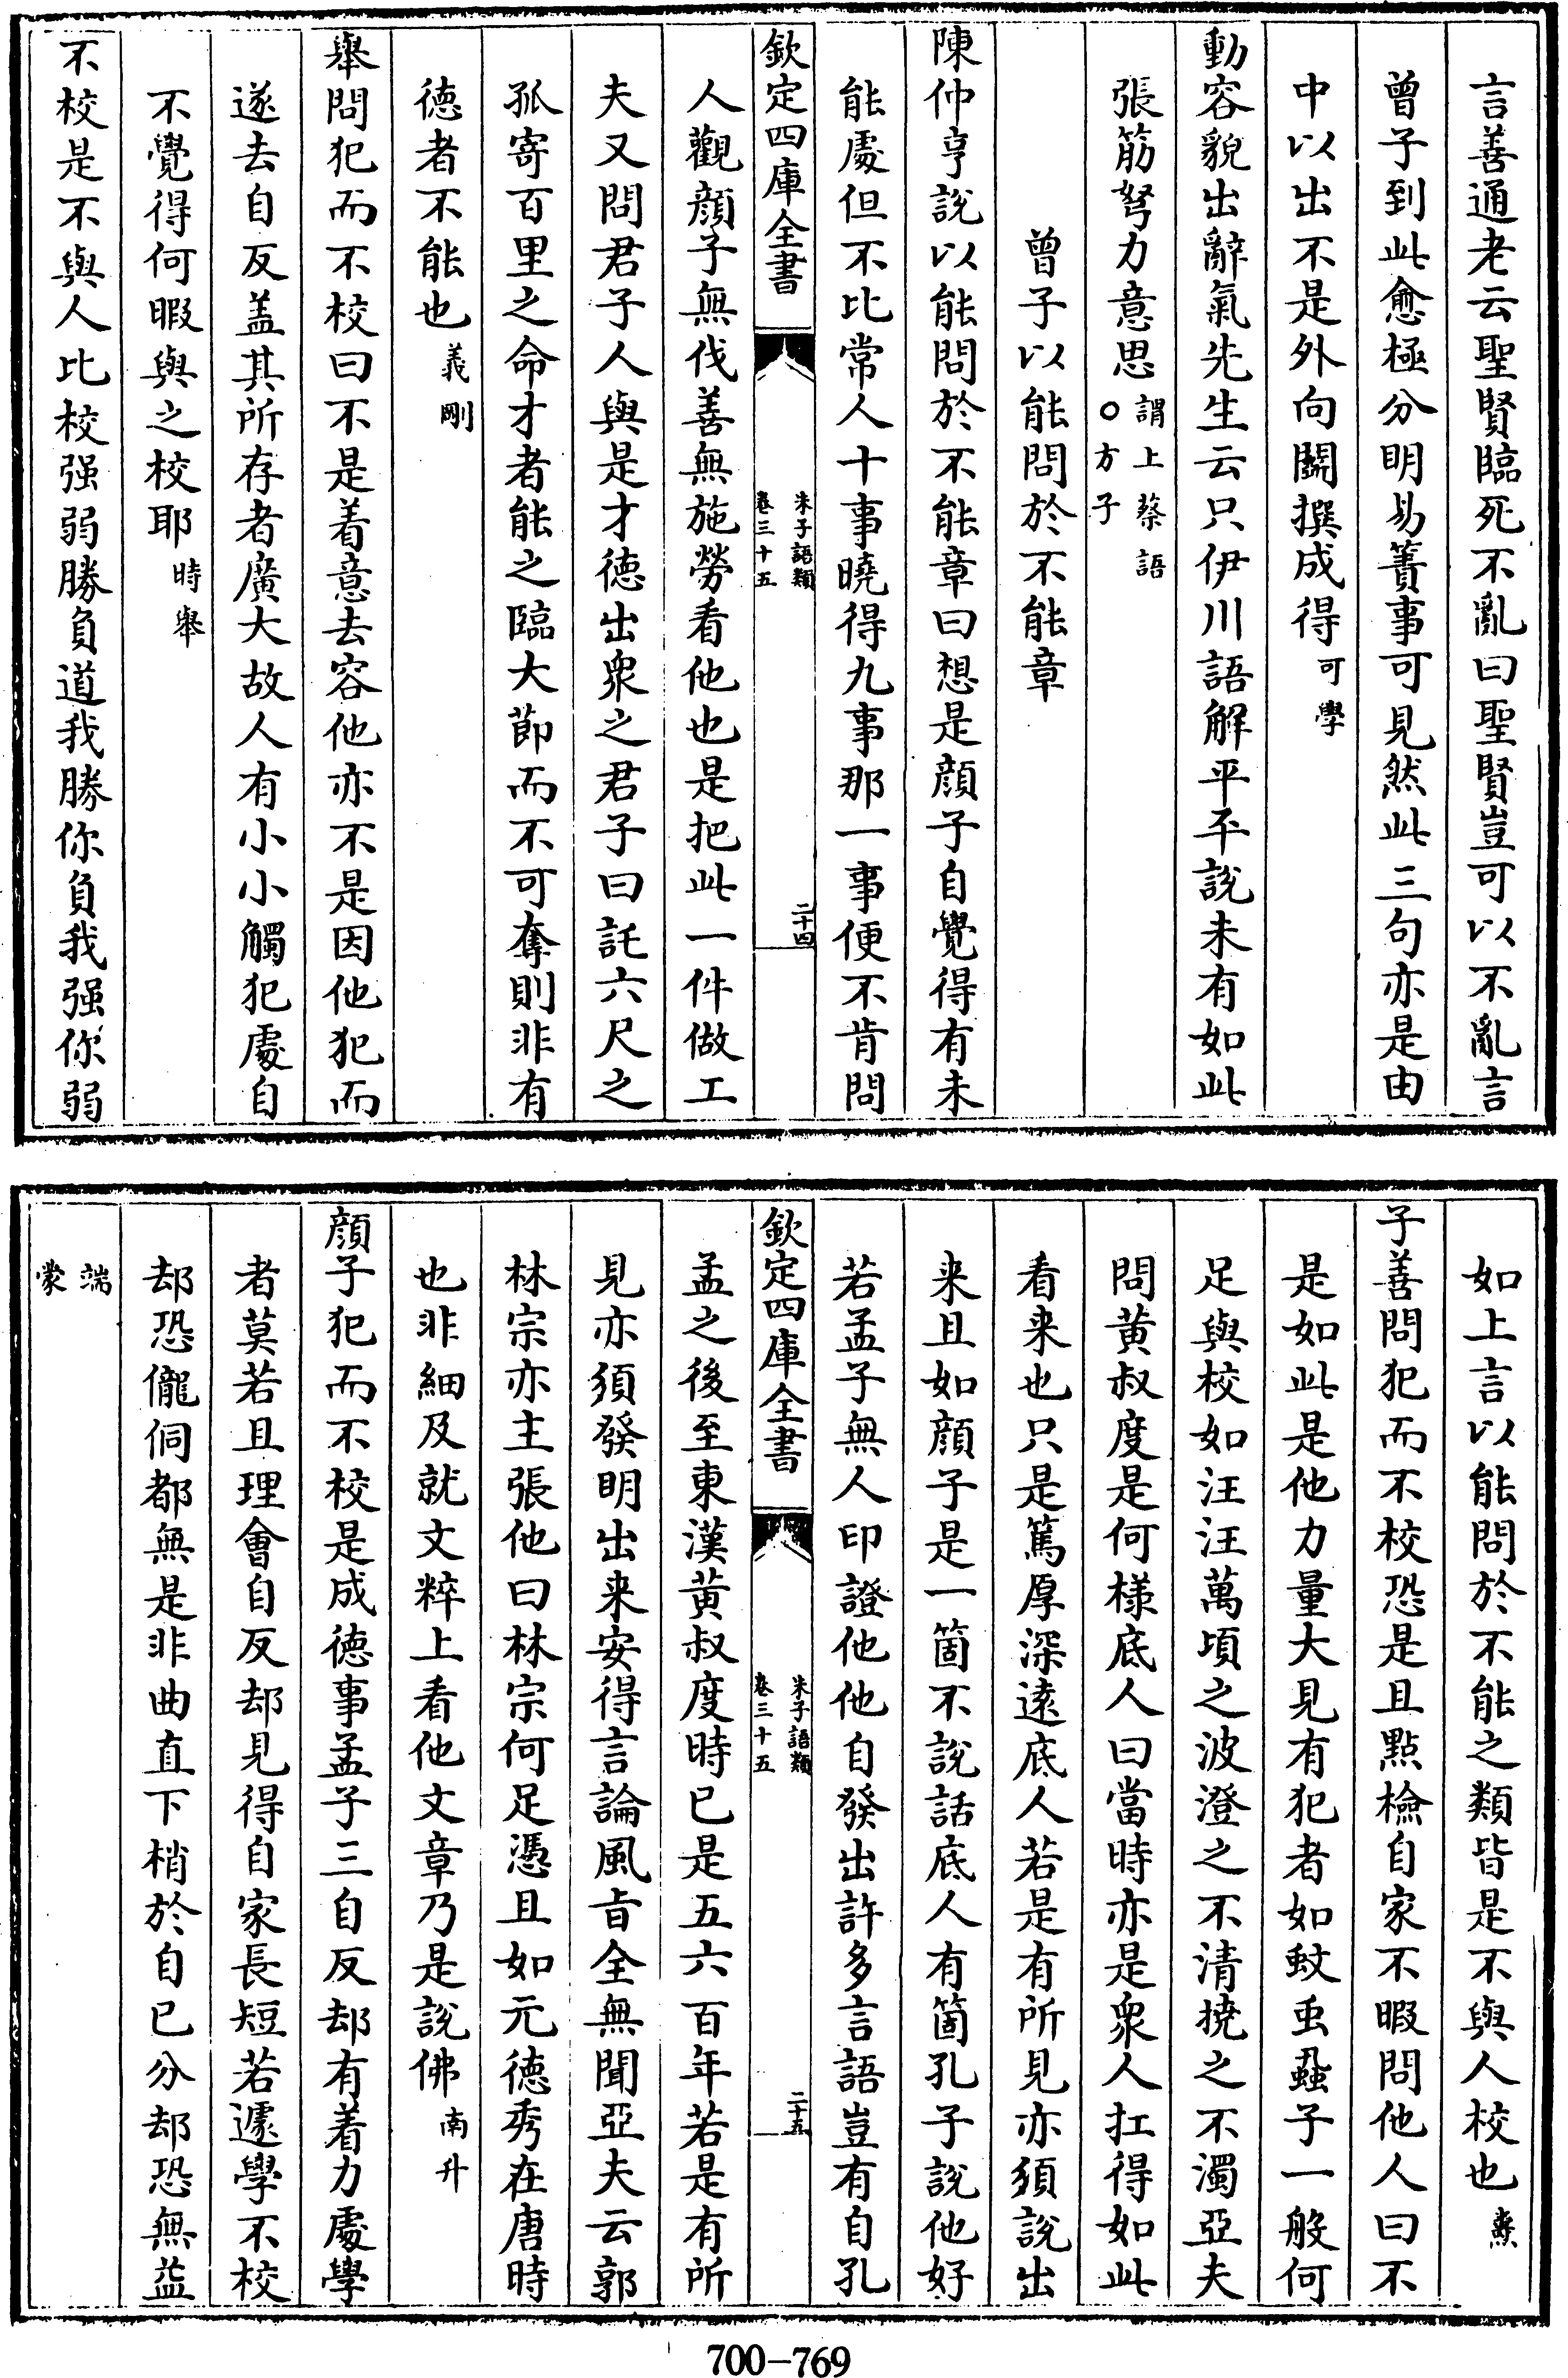 言善通老云聖賢臨死不亂曰聖賢豈可以不亂言
曾子到此愈極分明易簀事可見然此三句亦是由
中以出不是外向鬬撰成得可學
動容貌出辭氣先生云只伊川語解平平説未有如此
張筋弩力意思謂上蔡語○方子
曾子以能問於不能章
陳仲亨説以能問於不能章曰想是顔子自覺得有未
能處但不比常人十事曉得九事那一事便不肯問
欽定四庫全書
朱子語類
卷三十五
二十四
人觀顔子無伐善無施勞看他也是把此一件做工
夫又問君子人與是才徳出衆之君子曰託六尺之
孤寄百里之命才者能之臨大節而不可奪則非有
徳者不能也義剛
舉問犯而不校曰不是着意去容他亦不是因他犯而
遂去自反盖其所存者廣大故人有小小觸犯處自
不覺得何暇與之校耶時舉
不校是不與人比校强弱勝負道我勝你負我强你弱
如上言以能問於不能之類皆是不與人校也燾
子善問犯而不校恐是且點檢自家不暇問他人曰不
是如此是他力量大見有犯者如蚊䖝蝨子一般何
足與校如汪汪萬頃之波澄之不清撓之不濁亞夫
問黄叔度是何様底人曰當時亦是衆人扛得如此
看来也只是篤厚深逺底人若是有所見亦須説出
来且如顔子是一箇不説話底人有箇孔子説他好
若孟子無人印證他他自發出許多言語豈有自孔
欽定四庫全書
朱子語類
卷三十五
二十五
孟之後至東漢黄叔度時已是五六百年若是有所
見亦須發明出来安得言論風㫖全無聞亞夫云郭
林宗亦主張他曰林宗何足憑且如元徳秀在唐時
也非細及就文粹上看他文章乃是説佛南升
顔子犯而不校是成徳事孟子三自反却有着力處學
者莫若且理會自反却見得自家長短若遽學不校
却恐儱侗都無是非曲直下梢於自已分却恐無益
端蒙
700-769